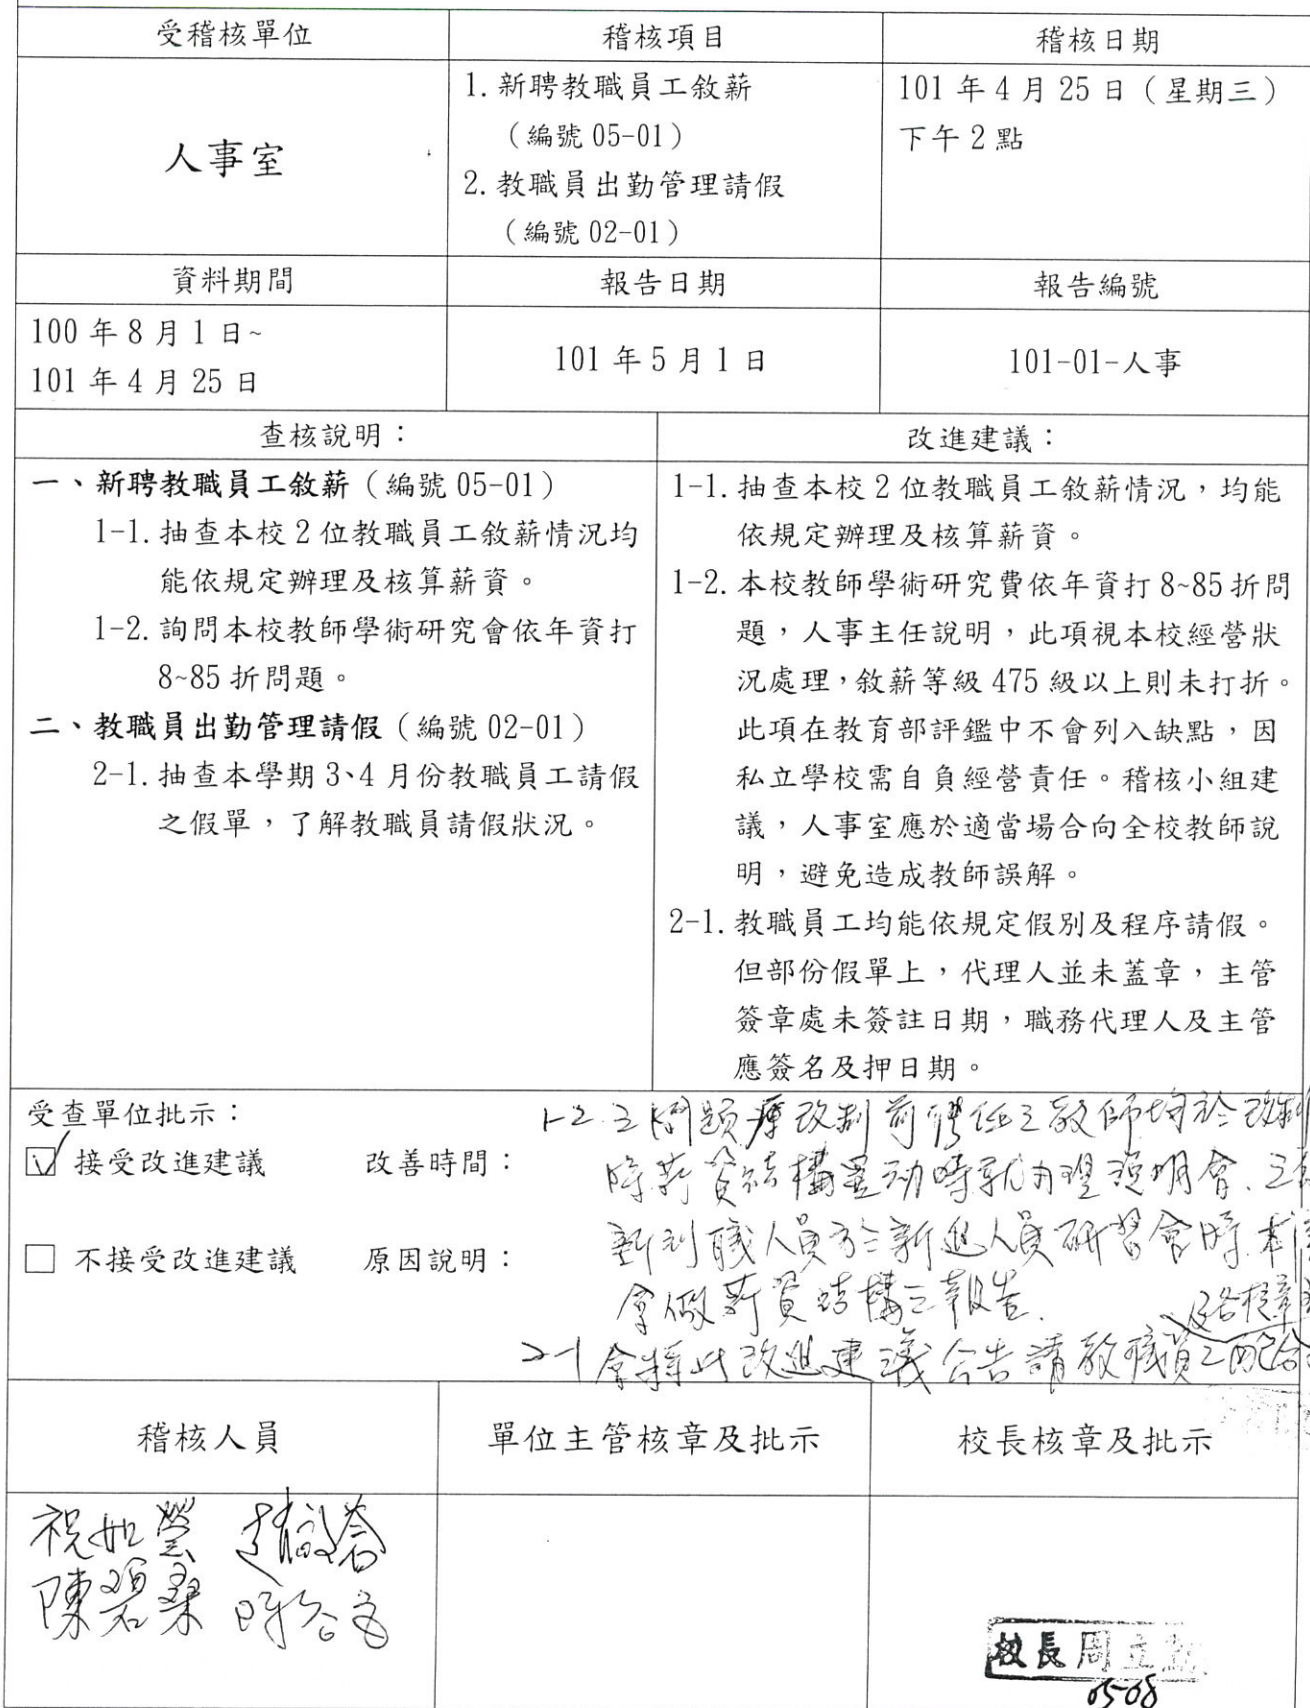 受稽核單位 稽核項目 稽核日期
人事室
1. 新聘教職員工敘薪
（編號 05-01）
2. 教職員出勤管理請假
（編號 02-01）
101 年 4 月 25 日（星期三）
下午 2 點
資料期間 報告日期 報告編號
100 年 8 月 1 日~
101 年 4 月 25 日
101 年 5 月 1 日
101-01-人事
查核說明：
一、新聘教職員工敘薪（編號 05-01）
1-1. 抽查本校 2 位教職員工敘薪情況均
能依規定辦理及核算薪資。
1-2. 詢問本校教師學術研究會依年資打
8~85 折問題。
二、教職員出勤管理請假（編號 02-01）
2-1. 抽查本學期 3、4 月份教職員工請假
之假單，了解教職員請假狀況。
改進建議：
1-1. 抽查本校 2 位教職員工敘薪情況，均能
依規定辦理及核算薪資。
1-2. 本校教師學術研究費依年資打 8~85 折問
題，人事主任說明，此項視本校經營狀
況處理，敘薪等級 475 級以上則未打折。
此項在教育部評鑑中不會列入缺點，因
私立學校需自負經營責任。稽核小組建
議，人事室應於適當場合向全校教師說
明，避免造成教師誤解。
2-1. 教職員工均能依規定假別及程序請假。
但部份假單上，代理人並未蓋章，主管
簽章處未簽註日期，職務代理人及主管
應簽名及押日期。
受查單位批示：
接受改進建議 改善時間：
不接受改進建議 原因說明：
1-2 之問題 改制前聘任之教師均於改制
時薪資結構異動時就辦理說明會.
新到職人員於新進人員研習會時
會做薪資結構之報告.
2-1 會將此改進建議公告請教職員之配合
稽核人員 單位主管核章及批示 校長核章及批示
祝如瑩
陳碧
校長周
05-08